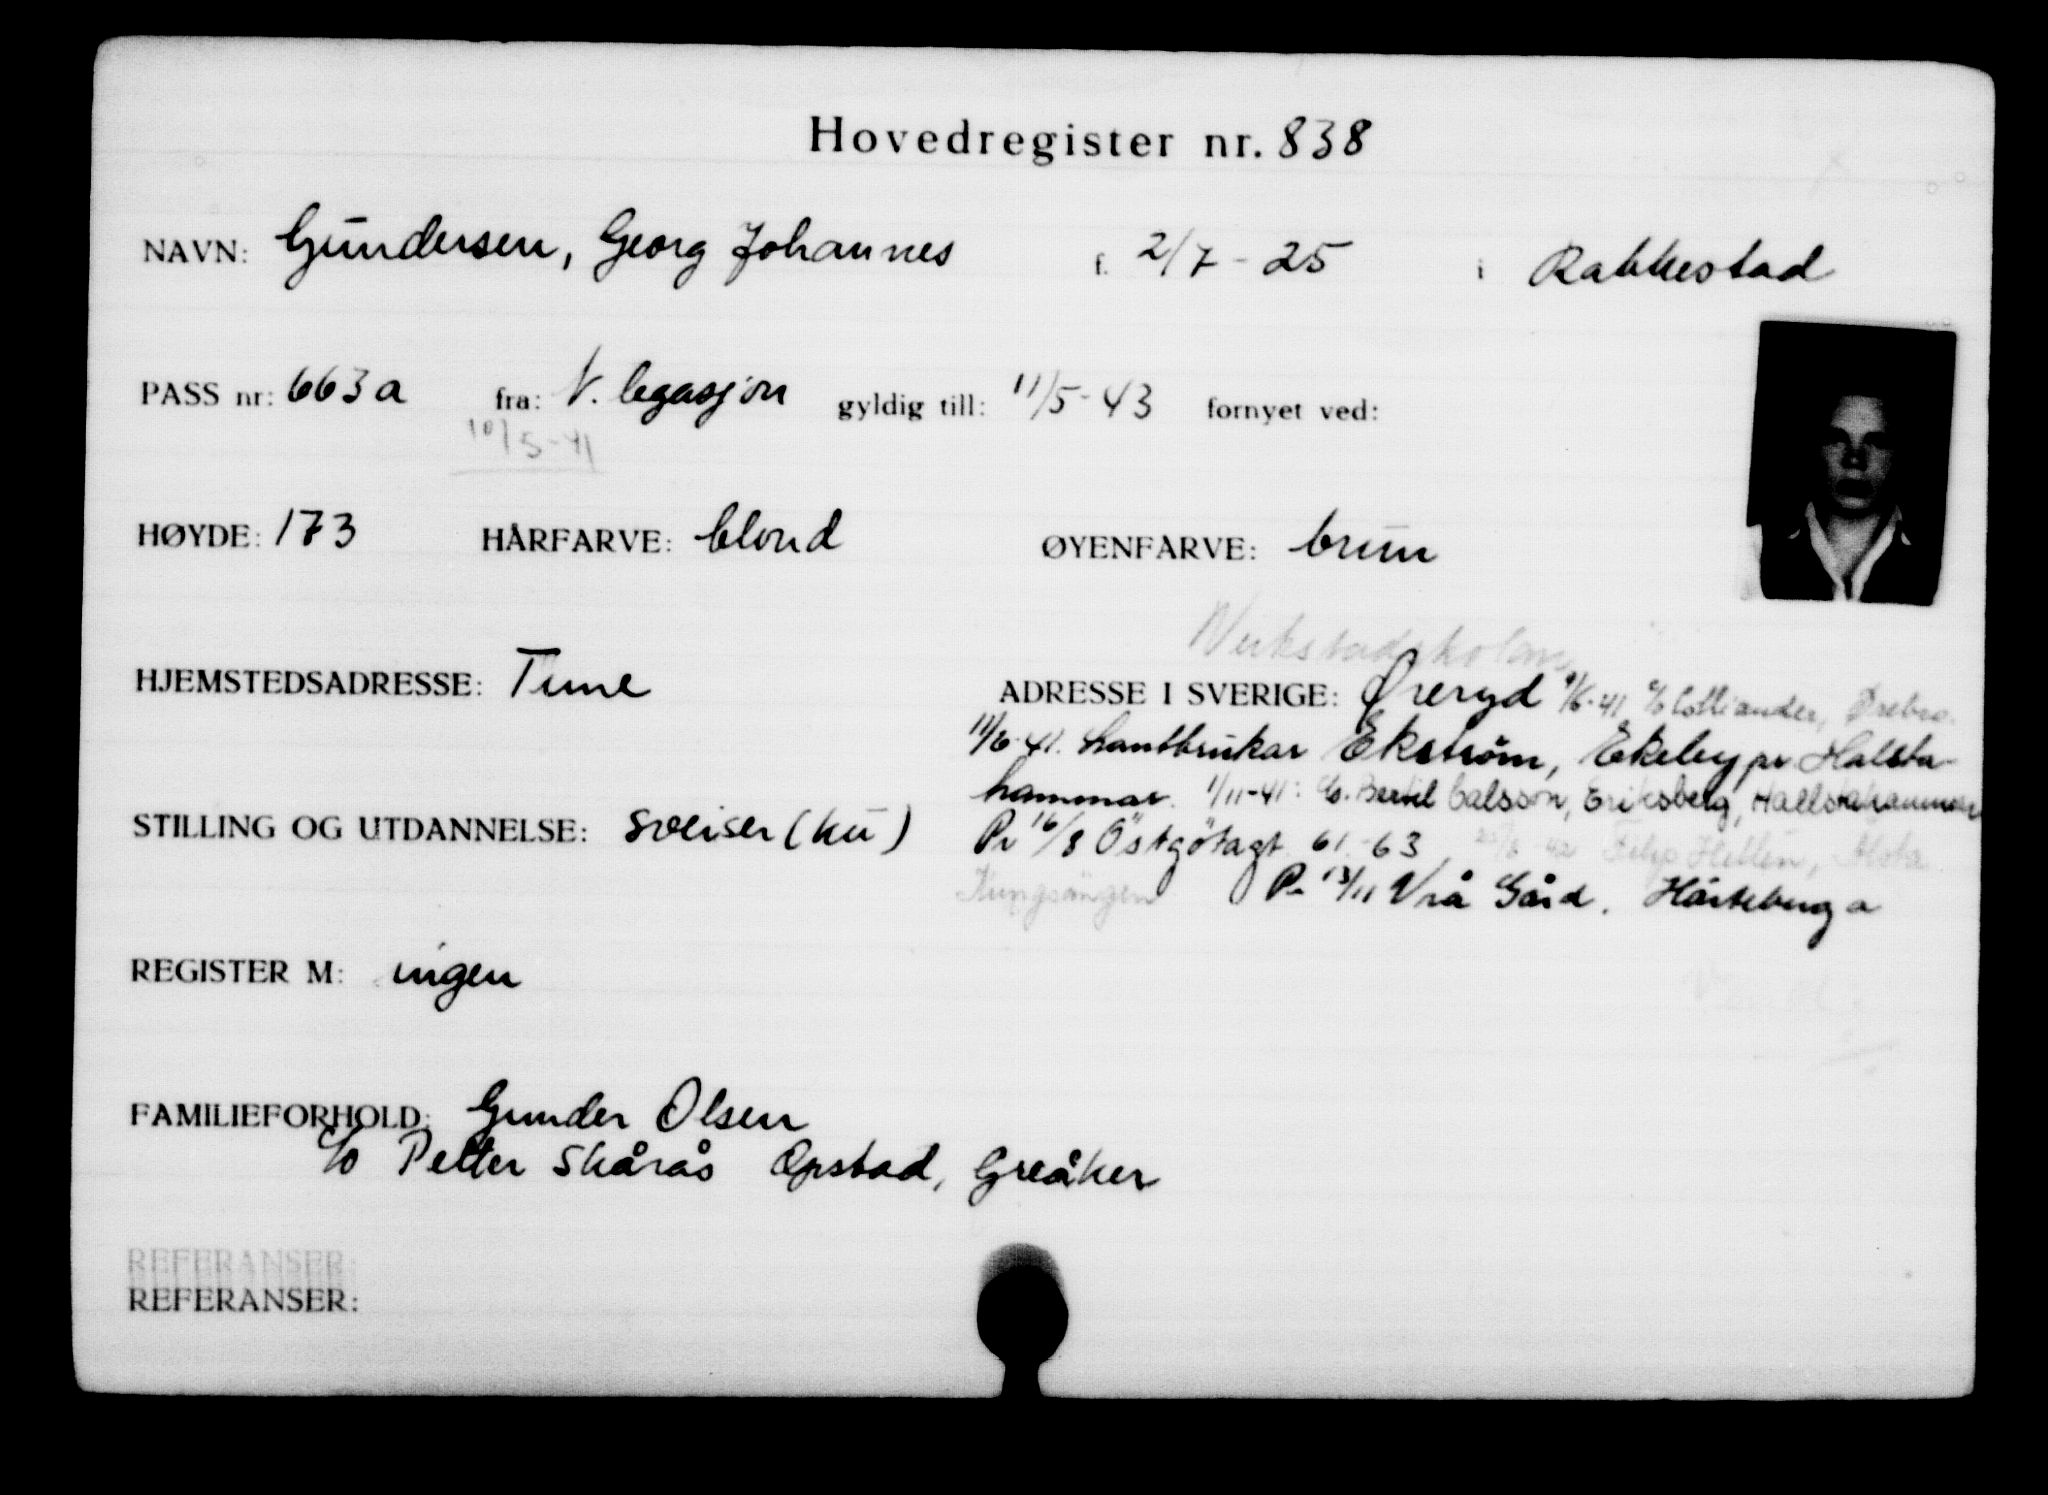 Hovedregister nr. 838
NAVN: Gundersen, Georg Johannes f. 2/7 - 25 i Rakkestad
PASS nr: 663a fra: N. legasjon gyldig till: 11/5 - 43 fornyet ved:
10/5-41
HØYDE: 173 HÅRFARVE: blond ØYENFARVE: brun
Verkstadskolan
HJEMSTEDSADRESSE: Tune ADRESSE I SVERIGE: Øreryd 9/6-41 c/o Colliander, Örebro
11/6-41. Lantbrukar Ekström, Ekeby pr Halsta-
hammar. 1/11-41: c/o. Bertil Calsson, Eriksberg, Hallstahammar
STILLING OG UTDANNELSE: sveiser (ku) Pr 16/8 Östgötagt 61-63
Kungsängen Pr 13/11 Vrå Gård.
REGISTER M: ingen
FAMILIEFORHOLD: Gunder Olsen
c/o Petter Skårås Opstad, Greåker
REFERANSER:
REFERANSER: